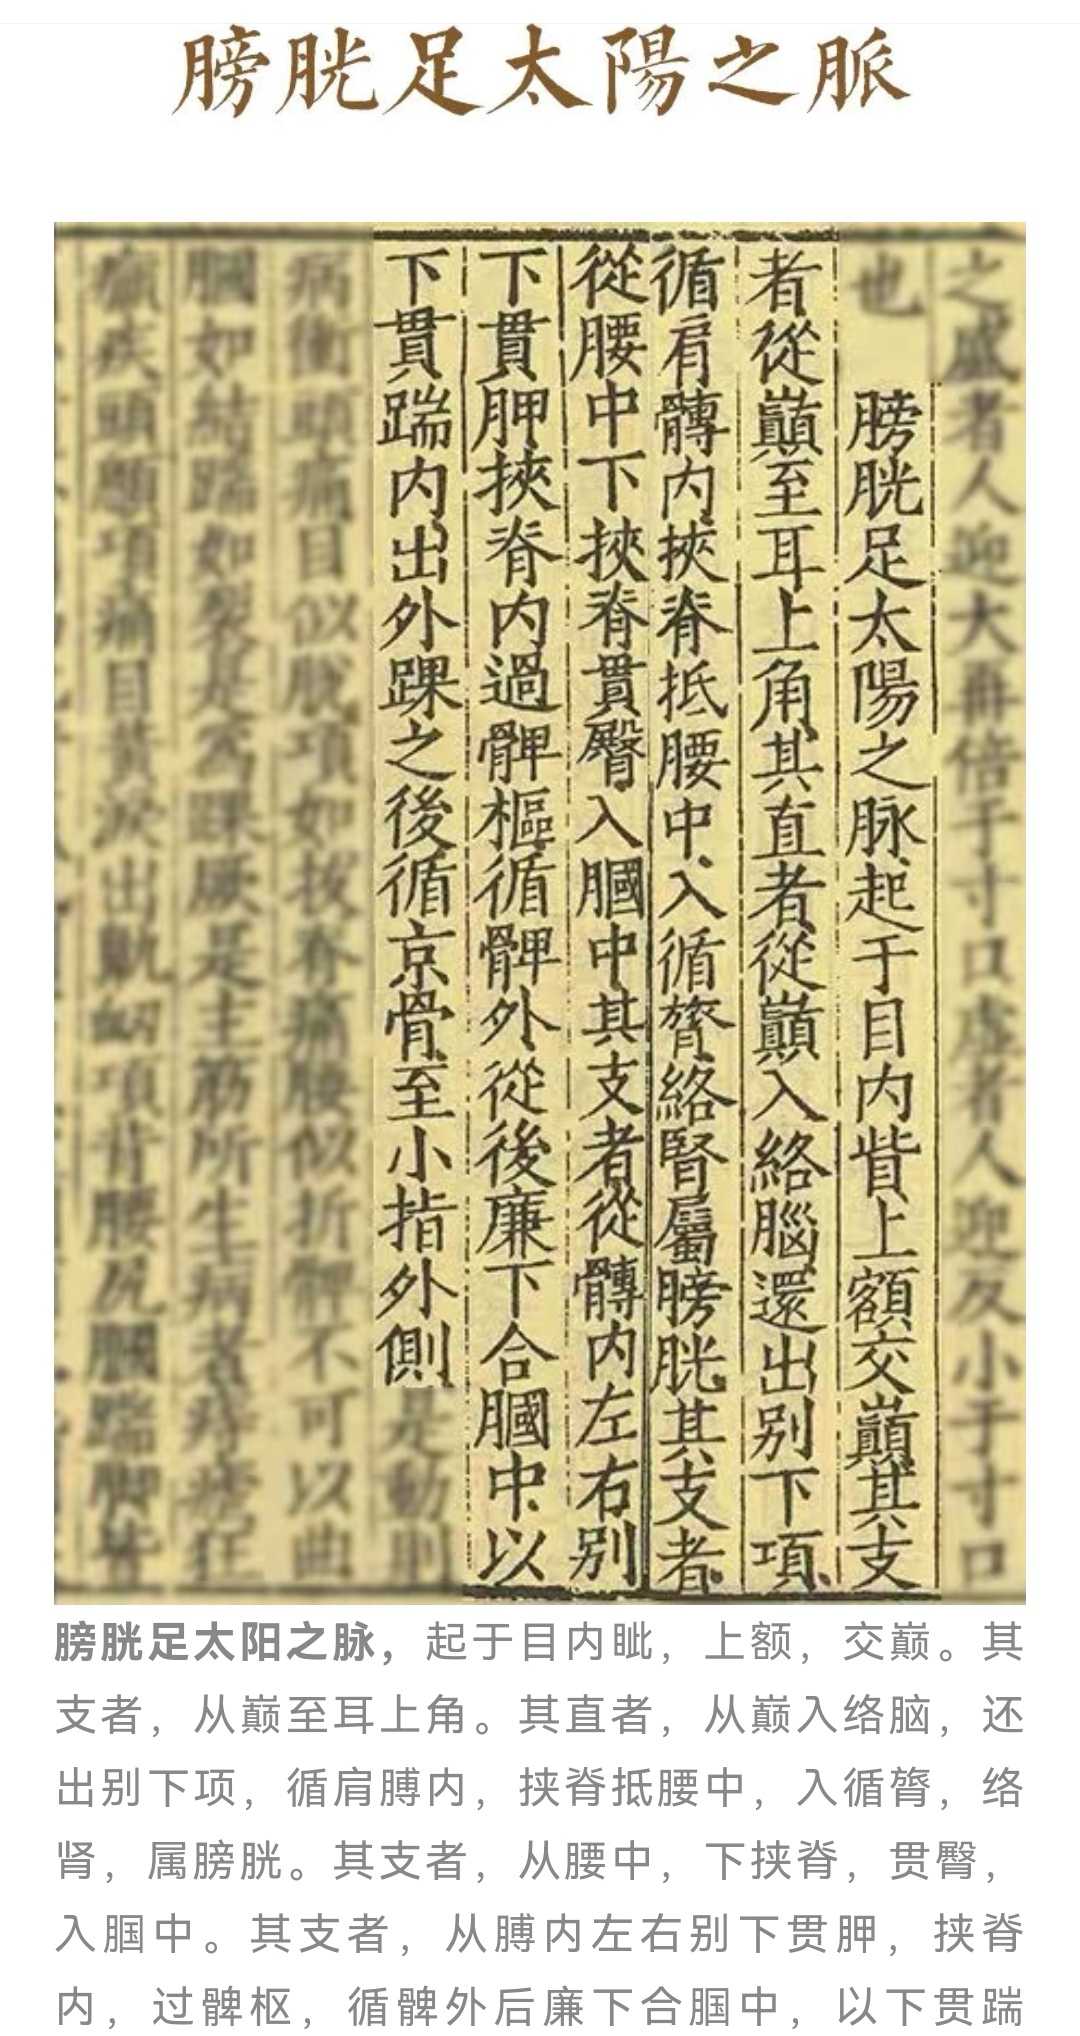 膀胱足太陽之脈
之盛者人迎大再倍于寸口虛者人迎反小于寸口
也
膀胱足太陽之脉起于目内眥上額交巔其支
者從巔至耳上角其直者從巔入絡腦還出别下項
循肩髆内挾脊抵腰中入循膂絡腎屬膀胱其支者
從腰中下挾脊貫臀入膕中其支者從髆内左右别
下貫胛挾脊内過髀樞循髀外從後廉下合膕中以
下貫踹内出外踝之後循京骨至小指外側是動則
病衝頭痛目似脫項如拔脊痛腰似折髀不可以曲
膕如結踹如裂是為踝厥是主筋所生病者痔瘧狂
癲疾頭顖項痛目黄淚出鼽衂項背腰尻膕踹脚皆
膀胱足太阳之脉，起于目内眦，上额，交巅。其
支者，从巅至耳上角。其直者，从巅入络脑，还
出别下项，循肩膊内，挟脊抵腰中，入循膂，络
肾，属膀胱。其支者，从腰中，下挟脊，贯臀，
入腘中。其支者，从膊内左右别下贯胛，挟脊
内，过髀枢，循髀外后廉下合腘中，以下贯踹